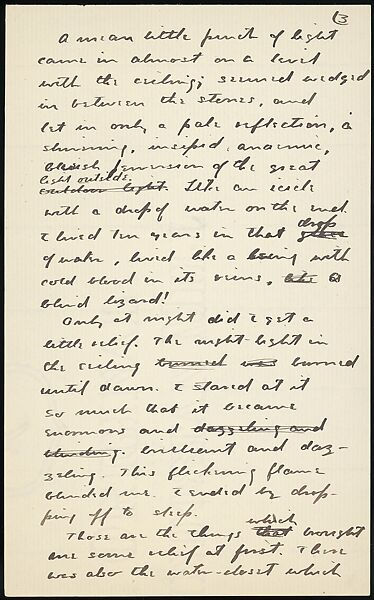 3
A mean little pinch of light
came in almost on a level
with the ceiling; seemed wedged
in between the stones, and
let in only a pale reflection, a
shimmering, insipid, anaemic,
bluish version of the great
light outside.
outdoor light. Like an icicle
with a drop of water on the end.
I lived ten years in that drop
of water, lived like a being with
cold blood in its veins, like a
blind lizard!
Only at night did I get a
little relief. The night-light in
the ceiling burned was burned
until dawn. I stared at it
so much that it became
enormous and dazzling and
blinding. brilliant and daz-
zling. This flickering flame
blinded me. I ended by drop-
ping off to sleep.
which
Those are the things that brought
me some relief at first. There
was also the water-closet which